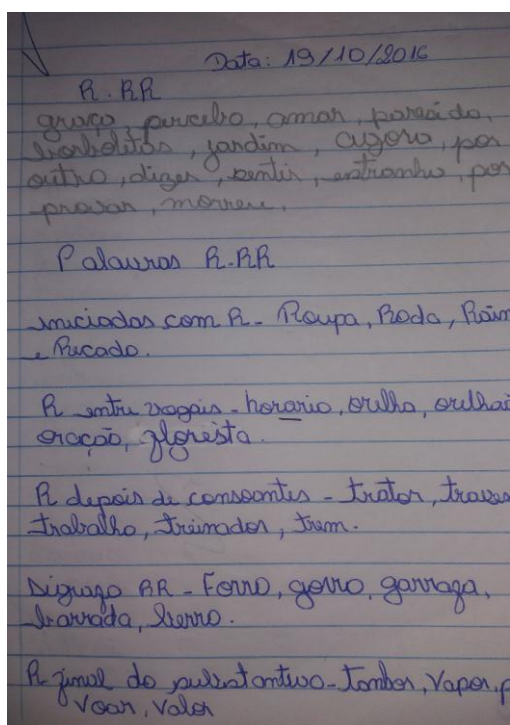 Data: 19/10/2016
R. RR
graça, percebo, amar, parecido,
borbolitas, jardim, agora, por
outro, dizer, sentir, estranho, por
provar, morreu.
Palavras R-RR
iniciadas com R - Roupa, Roda, Raim
e Recado.
R entre vogais - horario, orelha, orelhai
oração, floresta.
R depois de consoantes - trator, traves
trabalho, treinador, trem.
Digrafo RR - Forro, gorro, garrafa,
barrada, berro.
R final do substantivo - tambor, Vapor, p
voar, valor